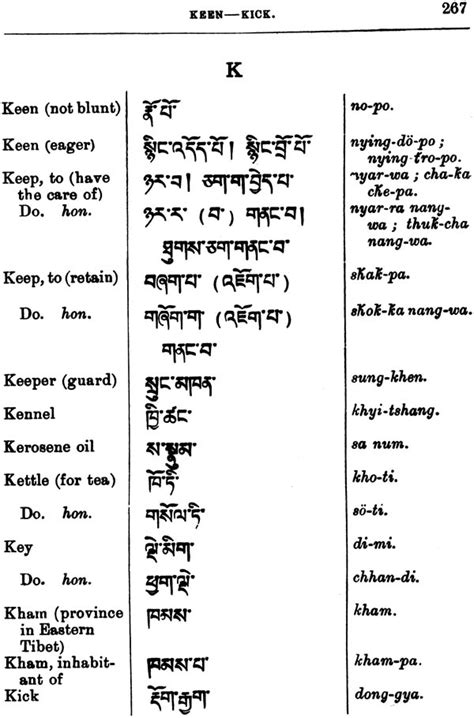 KEEN—KICK. 267
K
Keen (not blunt) རྣོ་པོ་ no-po.
Keen (eager) སྙིང་འདོད་པོ། སྙིང་བྲོ་པོ་ nying-dö-po ;
nying tro-po.
Keep, to (have ཉར་བ། ཅག་ག་བྱེད་པ་ nyar-wa ; cha-ka
the care of) che-pa.
Do. hon. ཉར་ར་ (བ་) གནང་བ། nyar-ra nang-
wa ; thuk-cha
ཐུགས་ཅག་གནང་བ་ nang-wa.
Keep, to (retain) བཞག་པ་ (འཇོག་པ་) shak-pa.
Do. hon. གཞོག་ག་ (འཇོག་པ་) shok-ka nang-wa.
གནང་བ་
Keeper (guard) སྲུང་མཁན་ sung-khen.
Kennel ཁྱི་ཚང་ khyi-tshang.
Kerosene oil ས་སྣུམ་ sa num.
Kettle (for tea) ཁོ་ཏི་ kho-ti.
Do. hon. གསོལ་ཏི་ sö-ti.
Key ལྡེ་མིག་ di-mi.
Do. hon. ཕྱག་ལྡེ་ chhan-di.
Kham (province ཁམས་ kham.
in Eastern
Tibet)
Kham, inhabit- ཁམས་པ་ kham-pa.
ant of
Kick རྡོག་རྒྱག་ dong-gya.